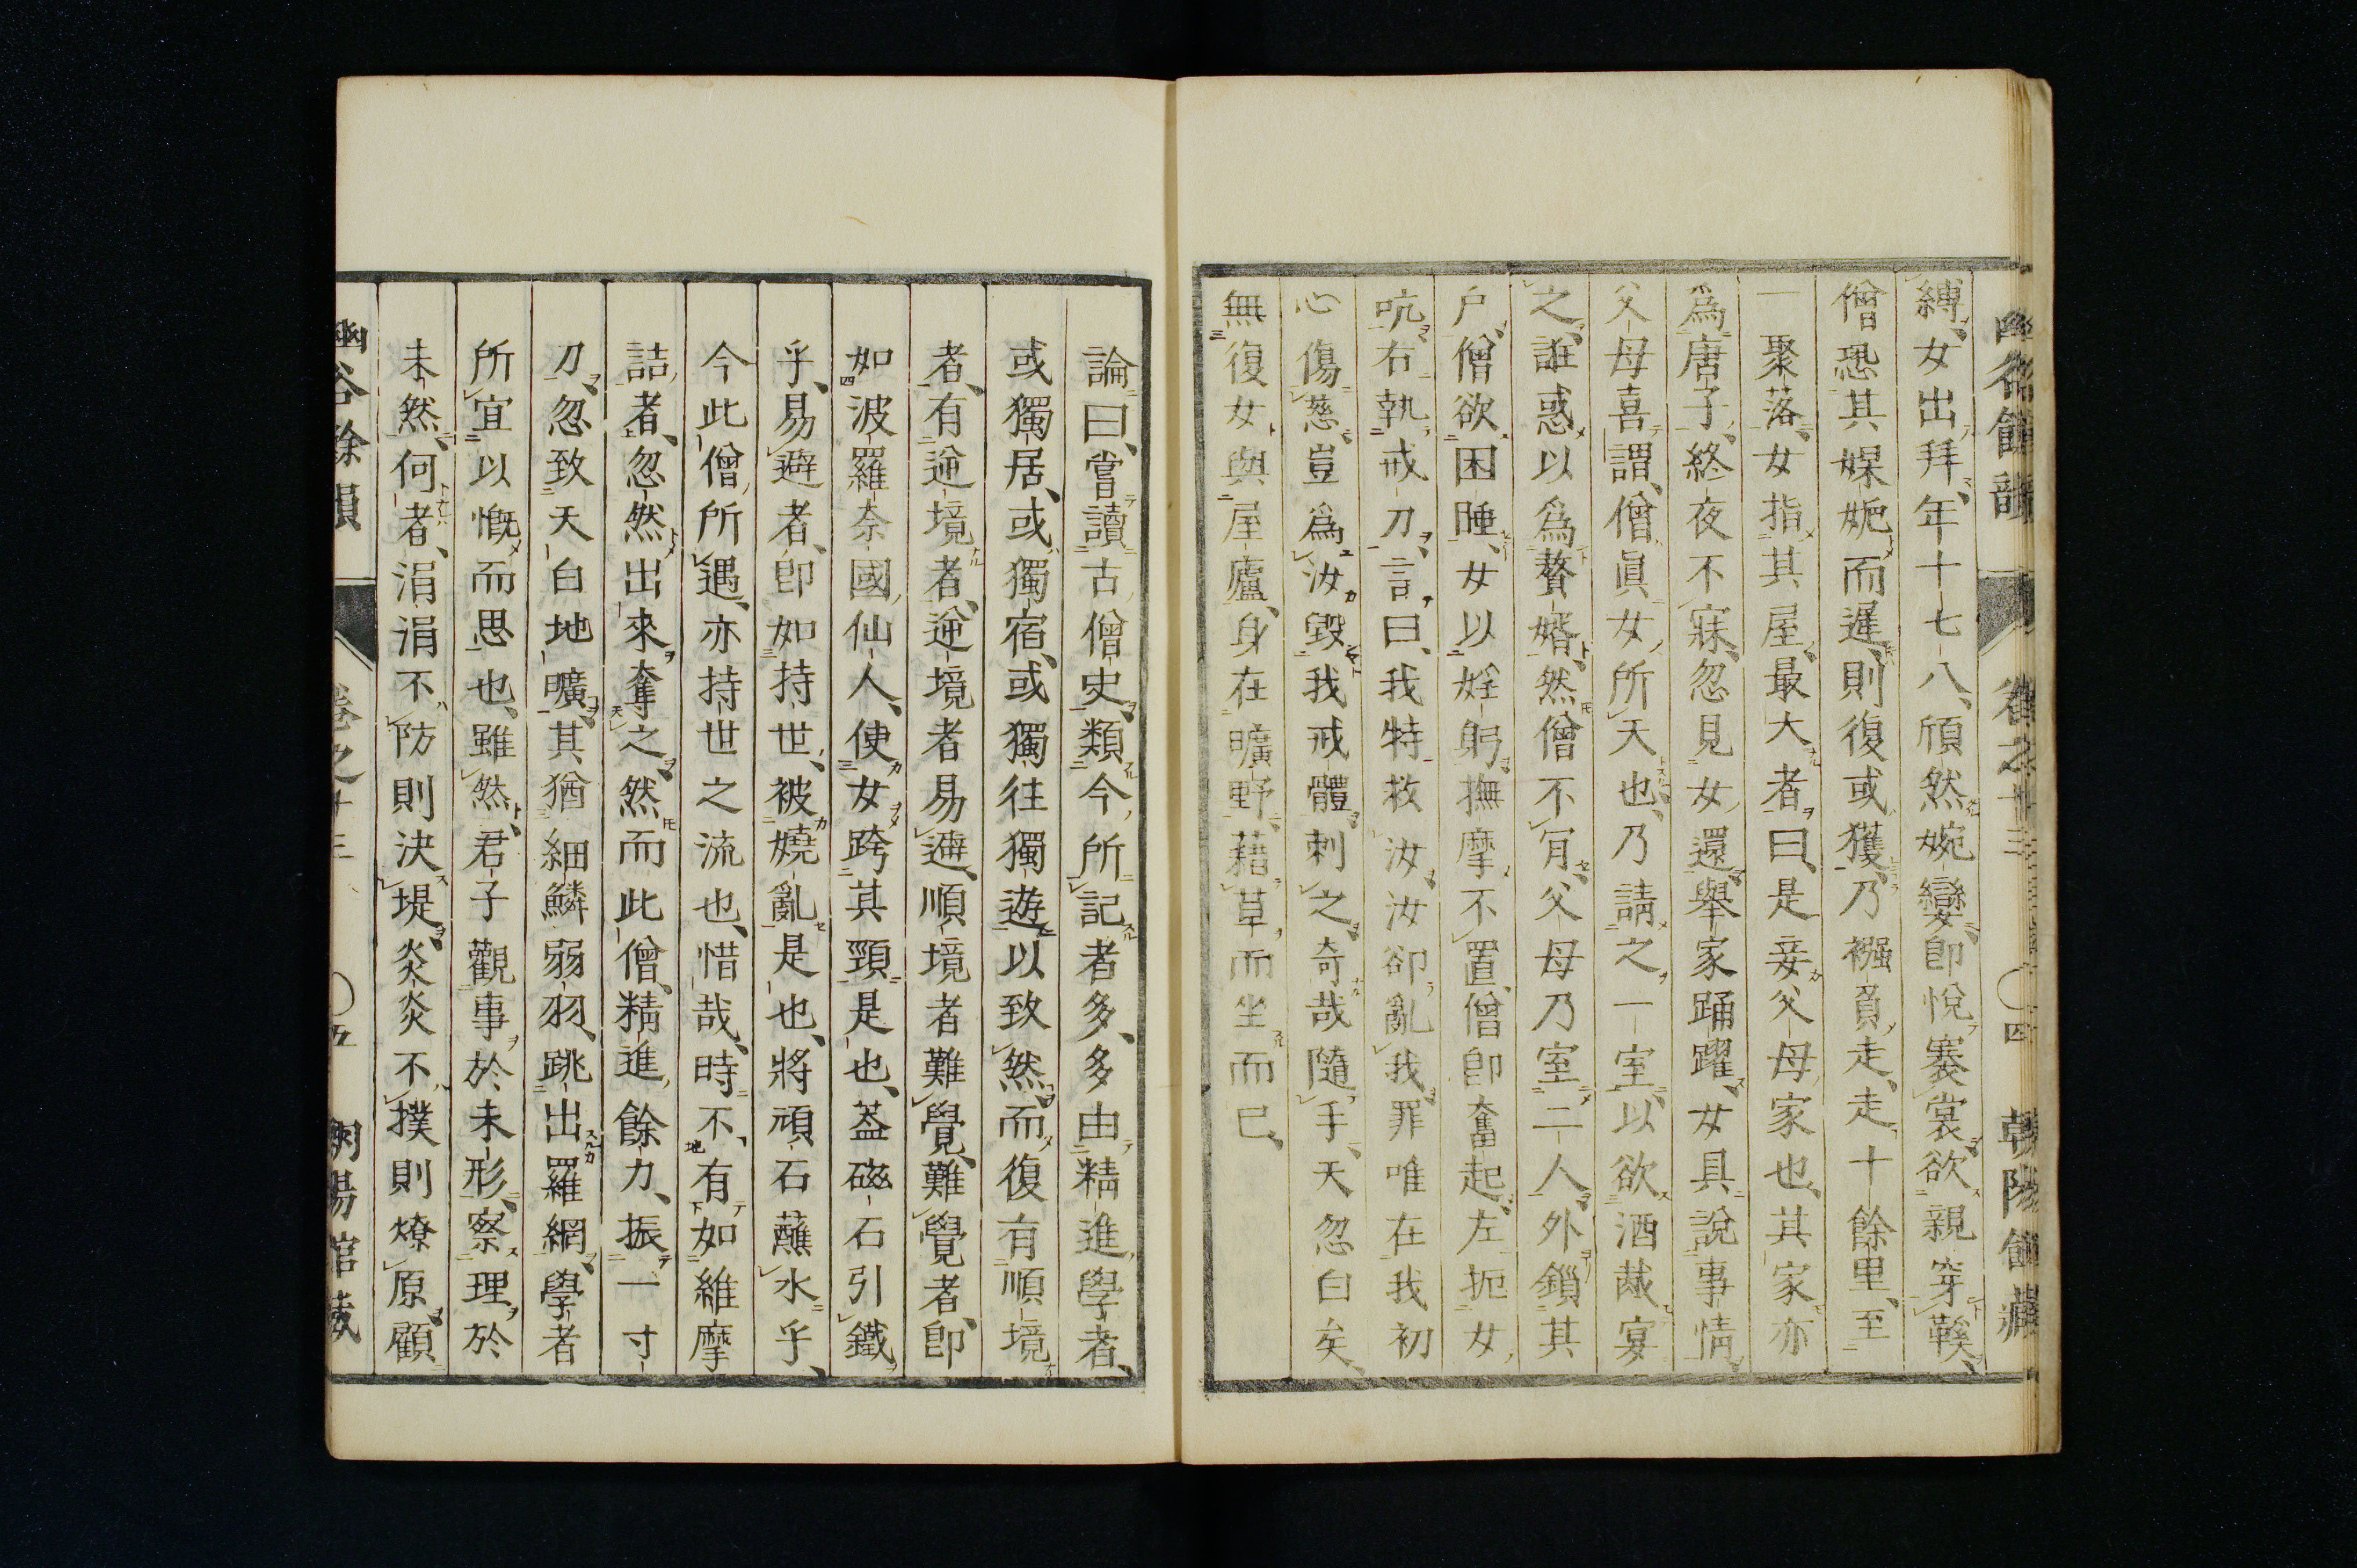 縛、女出拜、年十七八、頎然婉孌、即悅褰裳、欲親穿鞵、
僧恐其媟妮而遲、則復或獲、乃襁負走、走十餘里、至
一聚落、女指其屋、最大者曰、是妾父母家也、其家亦
爲唐子、終夜不寐、忽見女還、舉家踊躍、女具說事情、
父母喜謂、僧眞女所天也、乃請之一室、以欲酒胾宴
之、誑惑以爲贅婿、然僧不肎、父母乃室二人、外鎖其
戶、僧欲困睡、女以婬躬撫摩不置、僧即奮起、左扼女
吭、右執戒刀、言曰、我特救汝、汝卻亂我、罪唯在我初
心傷慈、豈爲汝毀我戒體、刺之、奇哉隨手、天忽白矣、
無復女與屋廬、身在曠野、藉草而坐而已、
論曰、嘗讀古僧史、類今所記者多、多由精進學者、
或獨居、或獨宿、或獨往獨遊、以致然、而復有順境
者、有逆境者、逆境者易遰、順境者難覺、難覺者、即
如波羅奈國仙人、使女跨其頸是也、蓋磁石引鐵
乎、易避者、即如持世、被嬈亂是也、將頑石蘸水乎、
今此僧所遇、亦持世之流也、惜哉、時不有如維摩
詰者、忽然出來奪之、然而此僧、精進餘力、振一寸
刀、忽致天白地曠、其猶細鱗弱羽、跳出羅網、學者
所宜以慨而思也、雖然、君子觀事於未形、察理於
未然、何者、涓涓不防則決堤、炎炎不撲則燎原、顧
幽谷餘韻 卷之十三 〇五 朝陽館藏